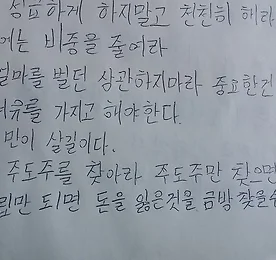 성급하게 하지말고 천천히 해라
에는 비중을 줄여라
얼마를 벌던 상관하지마라 중요한건
여유를 가지고 해야한다.
민이 살길이다.
주도주를 찾아라 주도주만 찾으면
만 되면 돈을 잃은것을 금방 찾을수